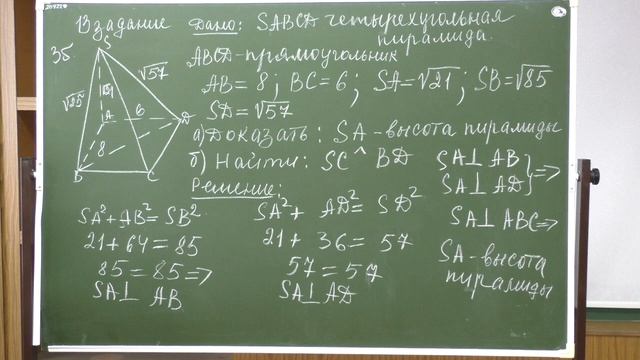 В задание Дано: SABCD четырехугольная
пирамида.
35
ABCD-прямоугольник
AB = 8; BC = 6; SA = √21; SB = √85
SD = √57
а) Доказать: SA - высота пирамиды
б) Найти: SC ^ BD
Решение:
S
√57
√85
√21
A
6
D
8
B
C
SA² + AB² = SB²
21 + 64 = 85
85 = 85 =>
SA⊥ AB
SA² + AD² = SD²
21 + 36 = 57
57 = 57
SA⊥ AD
SA⊥ AB
SA⊥ AD } =>
SA⊥ ABC =>
SA - высота
пирамиды